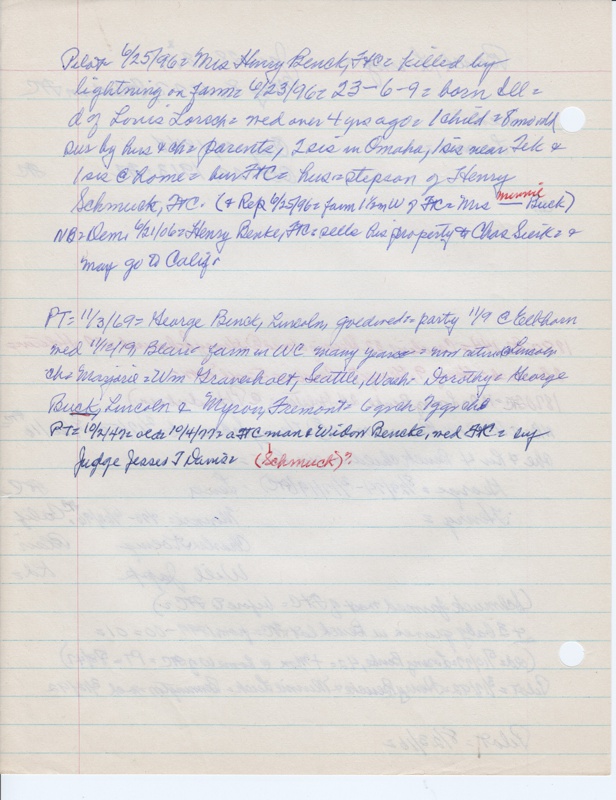 Pilot= 6/25/96= Mrs Henry Benck, FtC= killed by
lightning on farm= 6/23/96= 23-6-9= born Ill=
d of Louis Lorsch= wed over 4 yrs ago= 1 child= 8 mo old
sur by hus & ch= parents, 2 sis in Omaha, 1 sis near Tek &
1 sis @ home= bur FtC= hus= stepson of Henry
Schmuck, FtC. (+ Rep 6/25/96= farm 1½ m W of FtC= Mrs Minnie Buck)
NB= Dem 6/21/06= Henry Benke, FtC= sells his property to Chas &
may go to Calif.
PT= 11/3/69= George Benck, Lincoln, goldwed= party 11/9 @ Elkhorn
wed 11/12/19, Blair= farm in WC many years= now retired Lincoln
ch= Marjorie= Wm Graverholt, Seattle, Wash= Dorothy= George
Buck, Lincoln & Myron, Fremont= 6 grch 7 ggrch
PT= 10/2/47= oco 10/4/77= a FtC man & Widow Bencke, wed FtC= by
Judge Jesse T Davis= (Schmuck)?